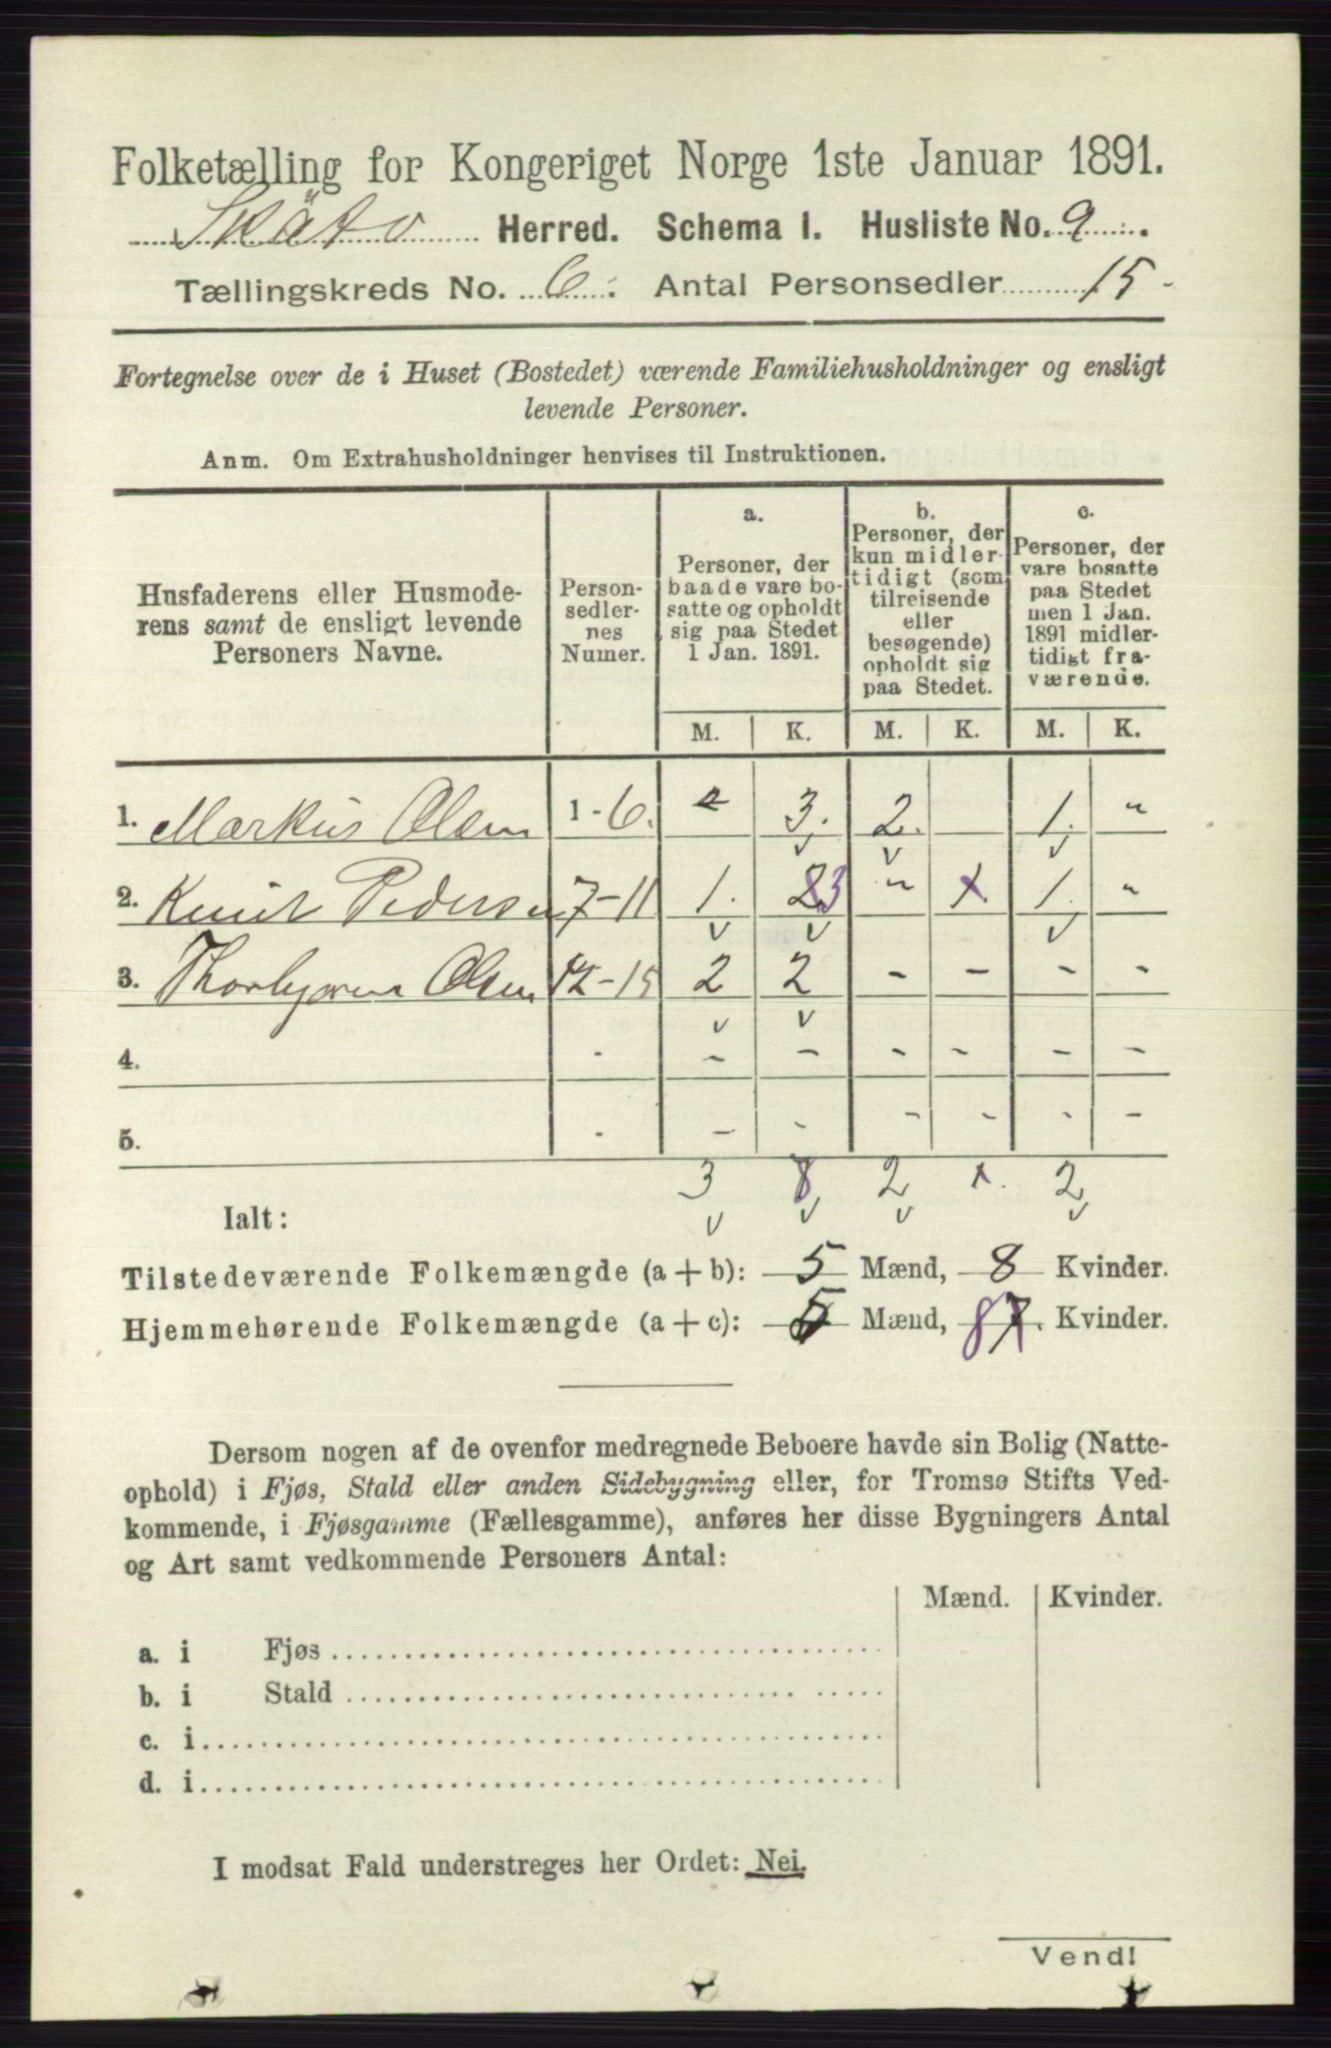 Folketælling for Kongeriget Norge 1ste Januar 1891.
Skåtø Herred. Schema I. Husliste No. 9.
Tællingskreds No. 6. Antal Personsedler 15-
Fortegnelse over de i Huset (Bostedet) værende Familiehusholdninger og ensligt
levende Personer.
Anm. Om Extrahusholdninger henvises til Instruktionen.
Husfaderens eller Husmode-
rens samt de ensligt levende
Personers Navne.
Person-
sedler-
nes
Numer.
a.
Personer, der
baade vare bo-
satte og opholdt
sig paa Stedet
1 Jan. 1891.
b.
Personer, der
kun midler-
tidigt (som
tilreisende
eller
besøgende)
opholdt sig
paa Stedet.
c.
Personer, der
vare bosatte
paa Stedet
men 1 Jan.
1891 midler-
tidigt fra-
værende.
M. K. M. K. M. K.
1. Markus Olsen 1-6. 3. 2. 1. "
v v v
2. Knut Pedersen 7-11 1. 3 " x 1. "
v v v
3. Thorbjørn Olsen 12-15 2 2 - - - -
v v
4. - - - - - - -
5. - - - - - - -
3 8 2 x. 2
Ialt: v v v v
Tilstedeværende Folkemængde (a + b): 5 Mænd, 8 Kvinder.
Hjemmehørende Folkemængde (a + c): 5 Mænd, 8 7. Kvinder.
Dersom nogen af de ovenfor medregnede Beboere havde sin Bolig (Natte-
ophold) i Fjøs, Stald eller anden Sidebygning eller, for Tromsø Stifts Ved-
kommende, i Fjøsgamme (Fællesgamme), anføres her disse Bygningers Antal
og Art samt vedkommende Personers Antal:
Mænd. Kvinder.
a. i Fjøs
b. i Stald
c. i
d. i
I modsat Fald understreges her Ordet: Nei.
Vend!